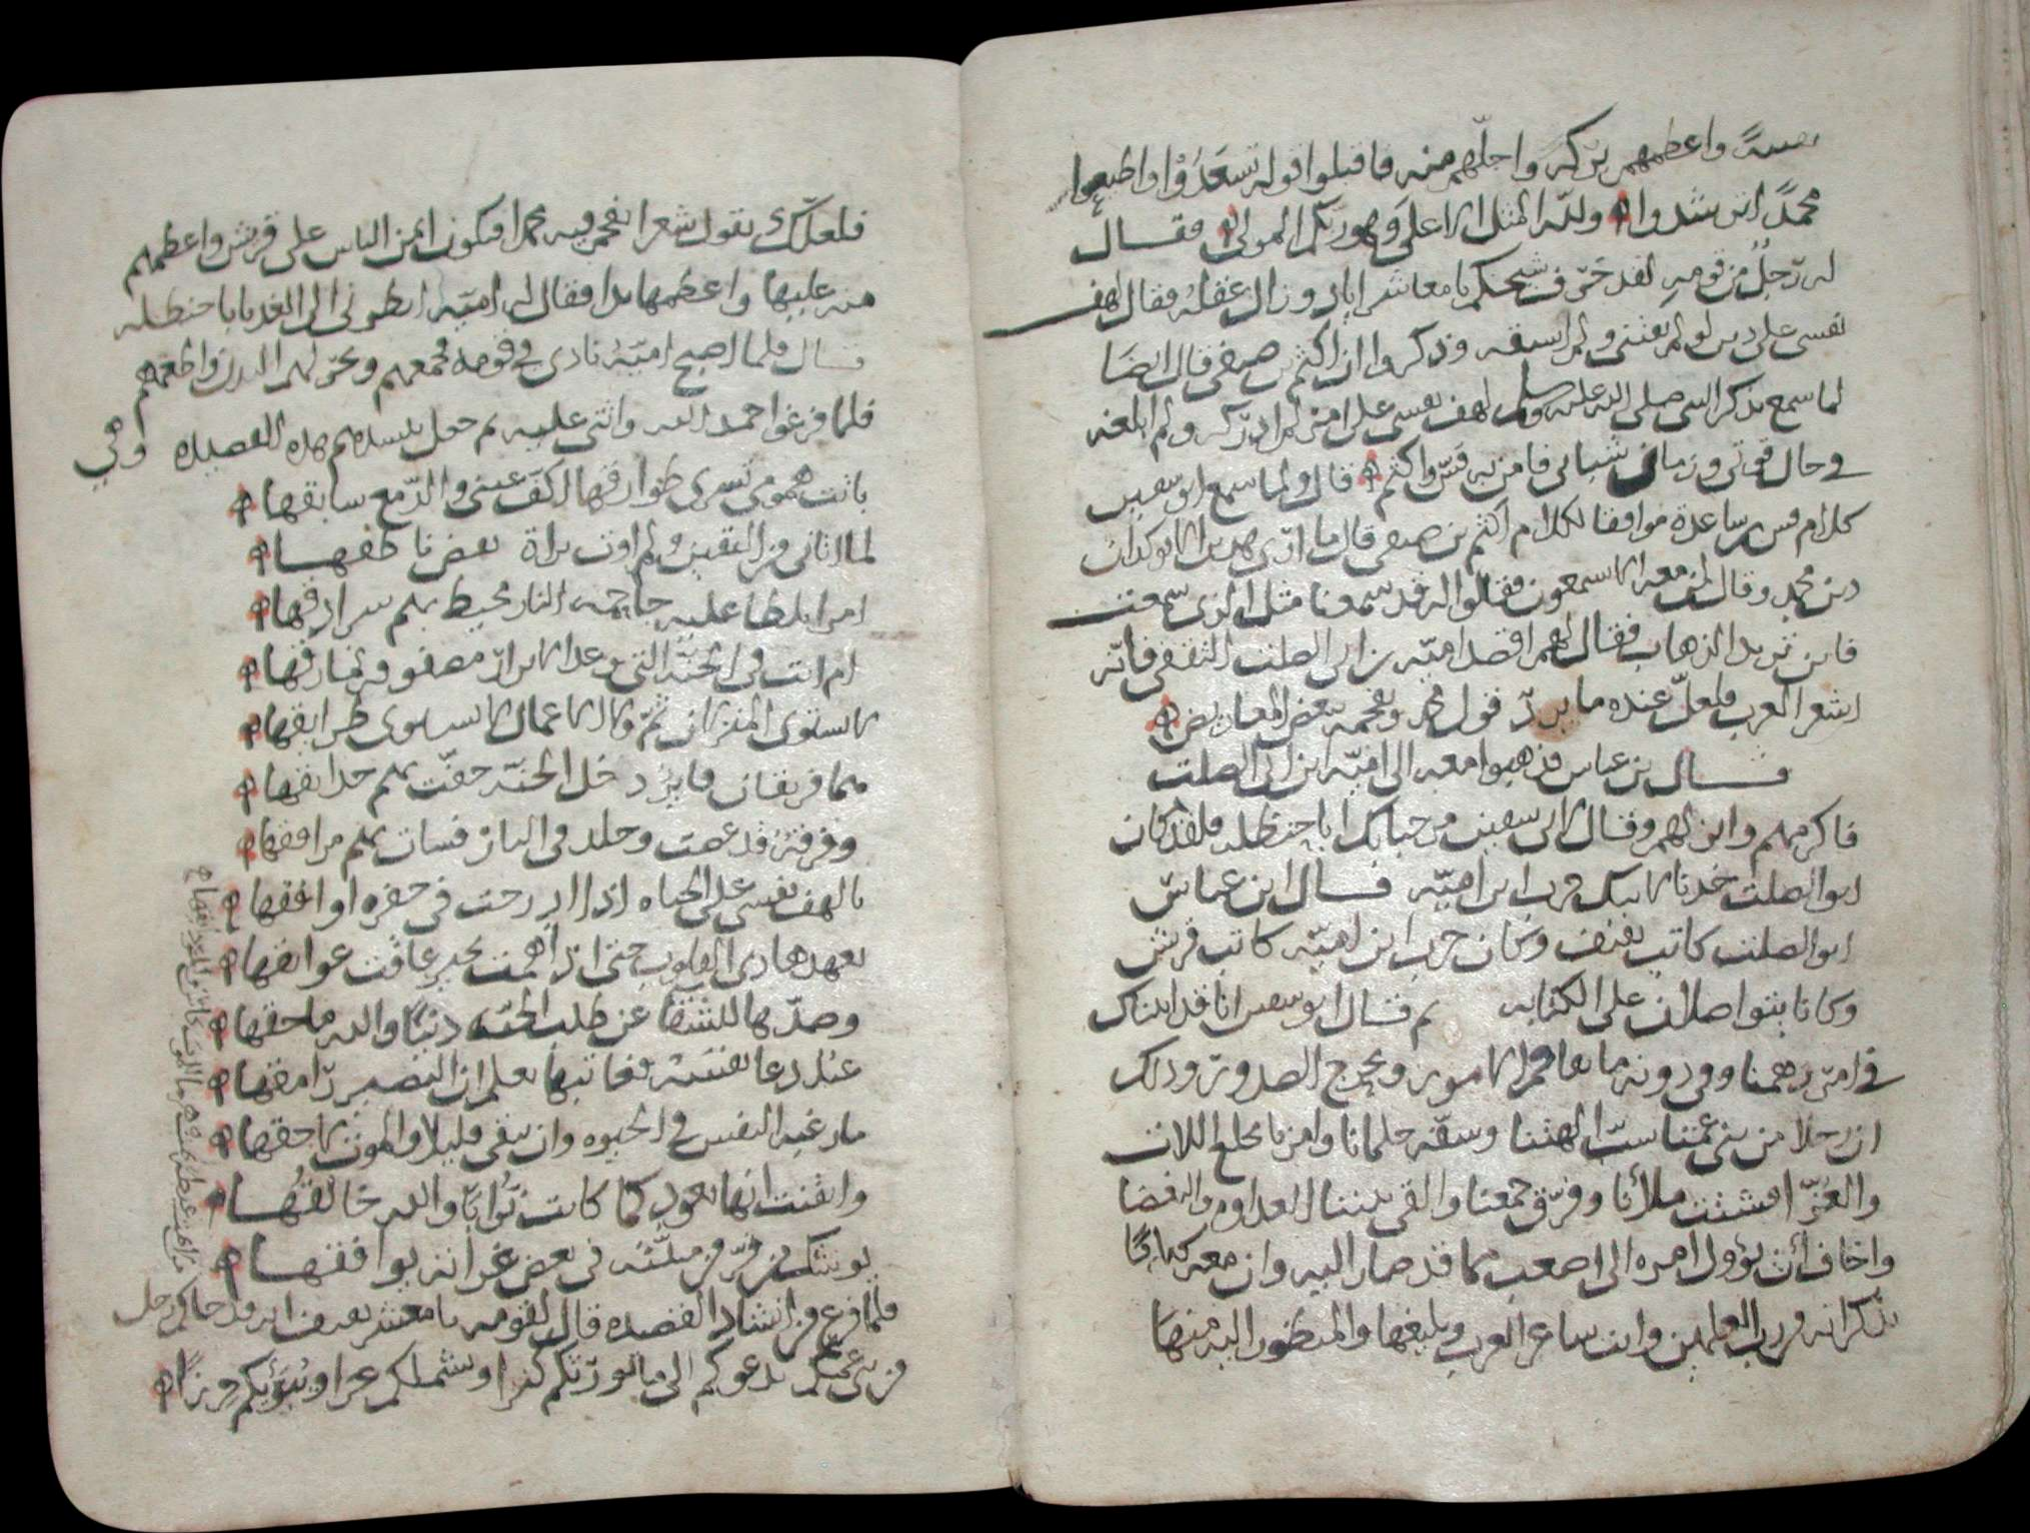 واعظمهم بركة واجلّهم منه فاقبلوا قوله تسعدوا واطيعوا
محمدًا ترشدوا ولله المثل الاعلى وهو ربكم المولى فقال
له رجلٌ من قومهِ لقد خرّف شيخكم يا معاشر اياد وزال عقلهُ فقال لهف
نفسى على دين لو لم يفتنى ولم اسبقه وذكروا ان اكثم بن صيفى قال ايضًا
لما سمع بذكر النبى صلى الله عليه وسلم لهف نفسى على امرٍ لم ادركه ولم ابلغه
فى حال قوتى وزمان شبابى فامن به قسّ واكثم قال ولما سمع ابو سفين
كلام قس بن ساعدة موافقا لكلام اكثم بن صيفى قال ما ارى هذين الا يوكدان
دين محمد وقال لمن معه الا تسمعون فقالوا له قد سمعنا مثل الذى سمعت
فاين تريد الذهاب فقال لهم اقصد اميّه بن ابى الصلت الثقفى فانّه
اشعر العرب فلعلّ عنده ما يردّ قول محمد ويفحمه ببعض المعاريض
قال بن عباس فذهبوا معه الى اميّه ابن ابى الصلت
فاكرمهم وانزلهم وقال لابى سفين مرحبا بك ابا حنظله فلقد كان
ابو الصلت خدنا لابيك حرب ابن اميّه قال ابن عباسّ
ابو الصلت كاتب ثقيف وكان حرب ابن اميّه كاتب قريش
وكانا يتواصلان على الكتابه ثم قال ابو سفين انا قد اتيناك
فى امرٍ دهمنا وفى دونه ما يفاقم الامور ويحرج الصدور وذلك
ان رجلا من بنى عمّنا سبّ الهتنا وسفّه حلمانا وامرنا بخلع اللات
والعُزّا فشتت ملأنا وفرّق جمعنا والقى بيننا العداوه والبغضا
واخاف أن يؤول امره الى اصعب مما قد صار اليه وان معه كتابًا
يذكر انه من رب العلمين وانت شاعر العرب وبليغها والمنظور اليه منها
فلعلّك تقول شعرا تفحم فيه محمدا فتكون ايمن الناس على قريش واعظمهم
منه عليها واعظمها يدا فقال له اميّه انظرنى الى الغد يا با حنظله
قال فلما اصبح اميّه نادى فى قومه فجمعهم ونحر لهم البدن واطعمهم
فلما فرغوا حمد الله واثنى عليه ثم جعل ينشدهم هذه القصيده وهى
باتت همومى تسرى طوارقها اكفّ عينى والدّمع سابقها
لما اتانى من اليقين ولم اوت براة بعض ناطقها
امن تلظا عليه جاحمه النار محيط بهم سرادقها
ام انت فى الجنّة التى وعد الابرار مصفوفه نمارقها
لا يستوى المنزلان ثمّ ولا الاعمال لا تستوى طرايقها
هما فريقان فايز دخل الجنّه حفّت بهم حدايقها
وفرقة قد عصت وحلد فى النار فسات بهم مرافقها
يا لهف نفسى على الحياه اذا ادرجت فى حفره اوافقها
تعهدها دى القلوب حتى اذا همت بخير عاقت عوايقها
وصدّها للشقا عن طلب الجنّه دنيًا والله ماحقها
عبد دعا نفسه فعاتبها يعلم ان البصير رامقها
ما رغبه النفس فى الحيوه وان تبقى قليلا والموت لاحقها
وايقنت انها تعود كما كانت تُرابًا والله خالقُها
يوشك من فرّ من منيّته فى بعض غراته يوافقها
فلما فرغ من انشاد القصيده قال لقومه يا معشر ثقيف انه قد جاكم رجل
من بنى عمكم يدعوكم الى ما يورثكم كفرا ويشملكم عرا ويبوّئكم وزرًا